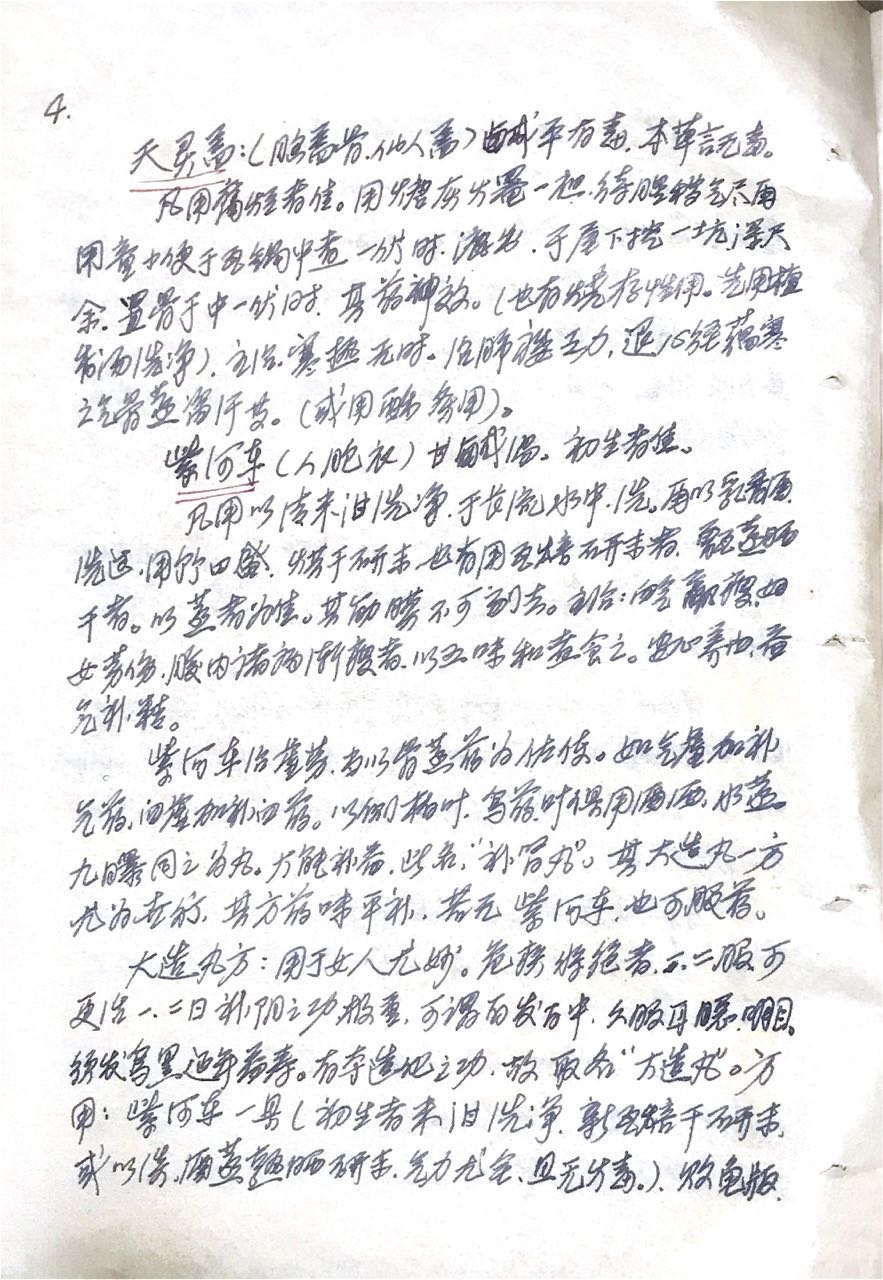 4.
天灵盖：（脑盖骨、仙人盖）咸平有毒，本草言无毒。
凡用腐烂者佳。用火塘灰火罨一夜，待腥秽气尽，再
用童小便于瓦锅中煮一伏时，漉出，于屋下挖一坑，深尺
余，置骨于中一伏时，其药神效。（也有火烧存性用。先用檀
香汤洗净）。主治：寒热无时，治肺痿乏力，退心经蕴寒
之气，骨蒸盗汗等。（或用酥炙用）。
紫河车（人胞衣）甘咸温。初生者佳。
凡用以清米泔洗净，于长流水中，洗。再以乳香酒
洗过，用竹四盛，烘干研末，也有用瓦焙研末者，甑蒸晒
干者。以蒸者为佳。其筋膜不可剔去。主治：血气羸瘦，妇
女劳伤，腹内诸病渐瘦者，以五味和煮食之。安心养血，益
气补精。
紫河车治虚劳，当以骨蒸药为佐使。如气虚加补
气药，血虚加补血药。以侧柏叶、乌药叶俱用酒洒，水蒸
九曝同之为丸。大能补益，此名“补肾丸”。其大造丸一方
尤为世行，其方药味平补，若无紫河车，也可服药。
大造丸方：用于女人尤妙。危疾将绝者，一、二服，可
更活一、二日。补阴之功极重，可谓百发百中，久服耳聪、明目。
须发乌黑，延年益寿。有夺造化之功，故取名“大造丸”。方
用：紫河车一具（初生者米泔洗净，新瓦焙干研末，
或以淡酒蒸熟晒研末，气力尤全，且无火毒。）、败龟版，